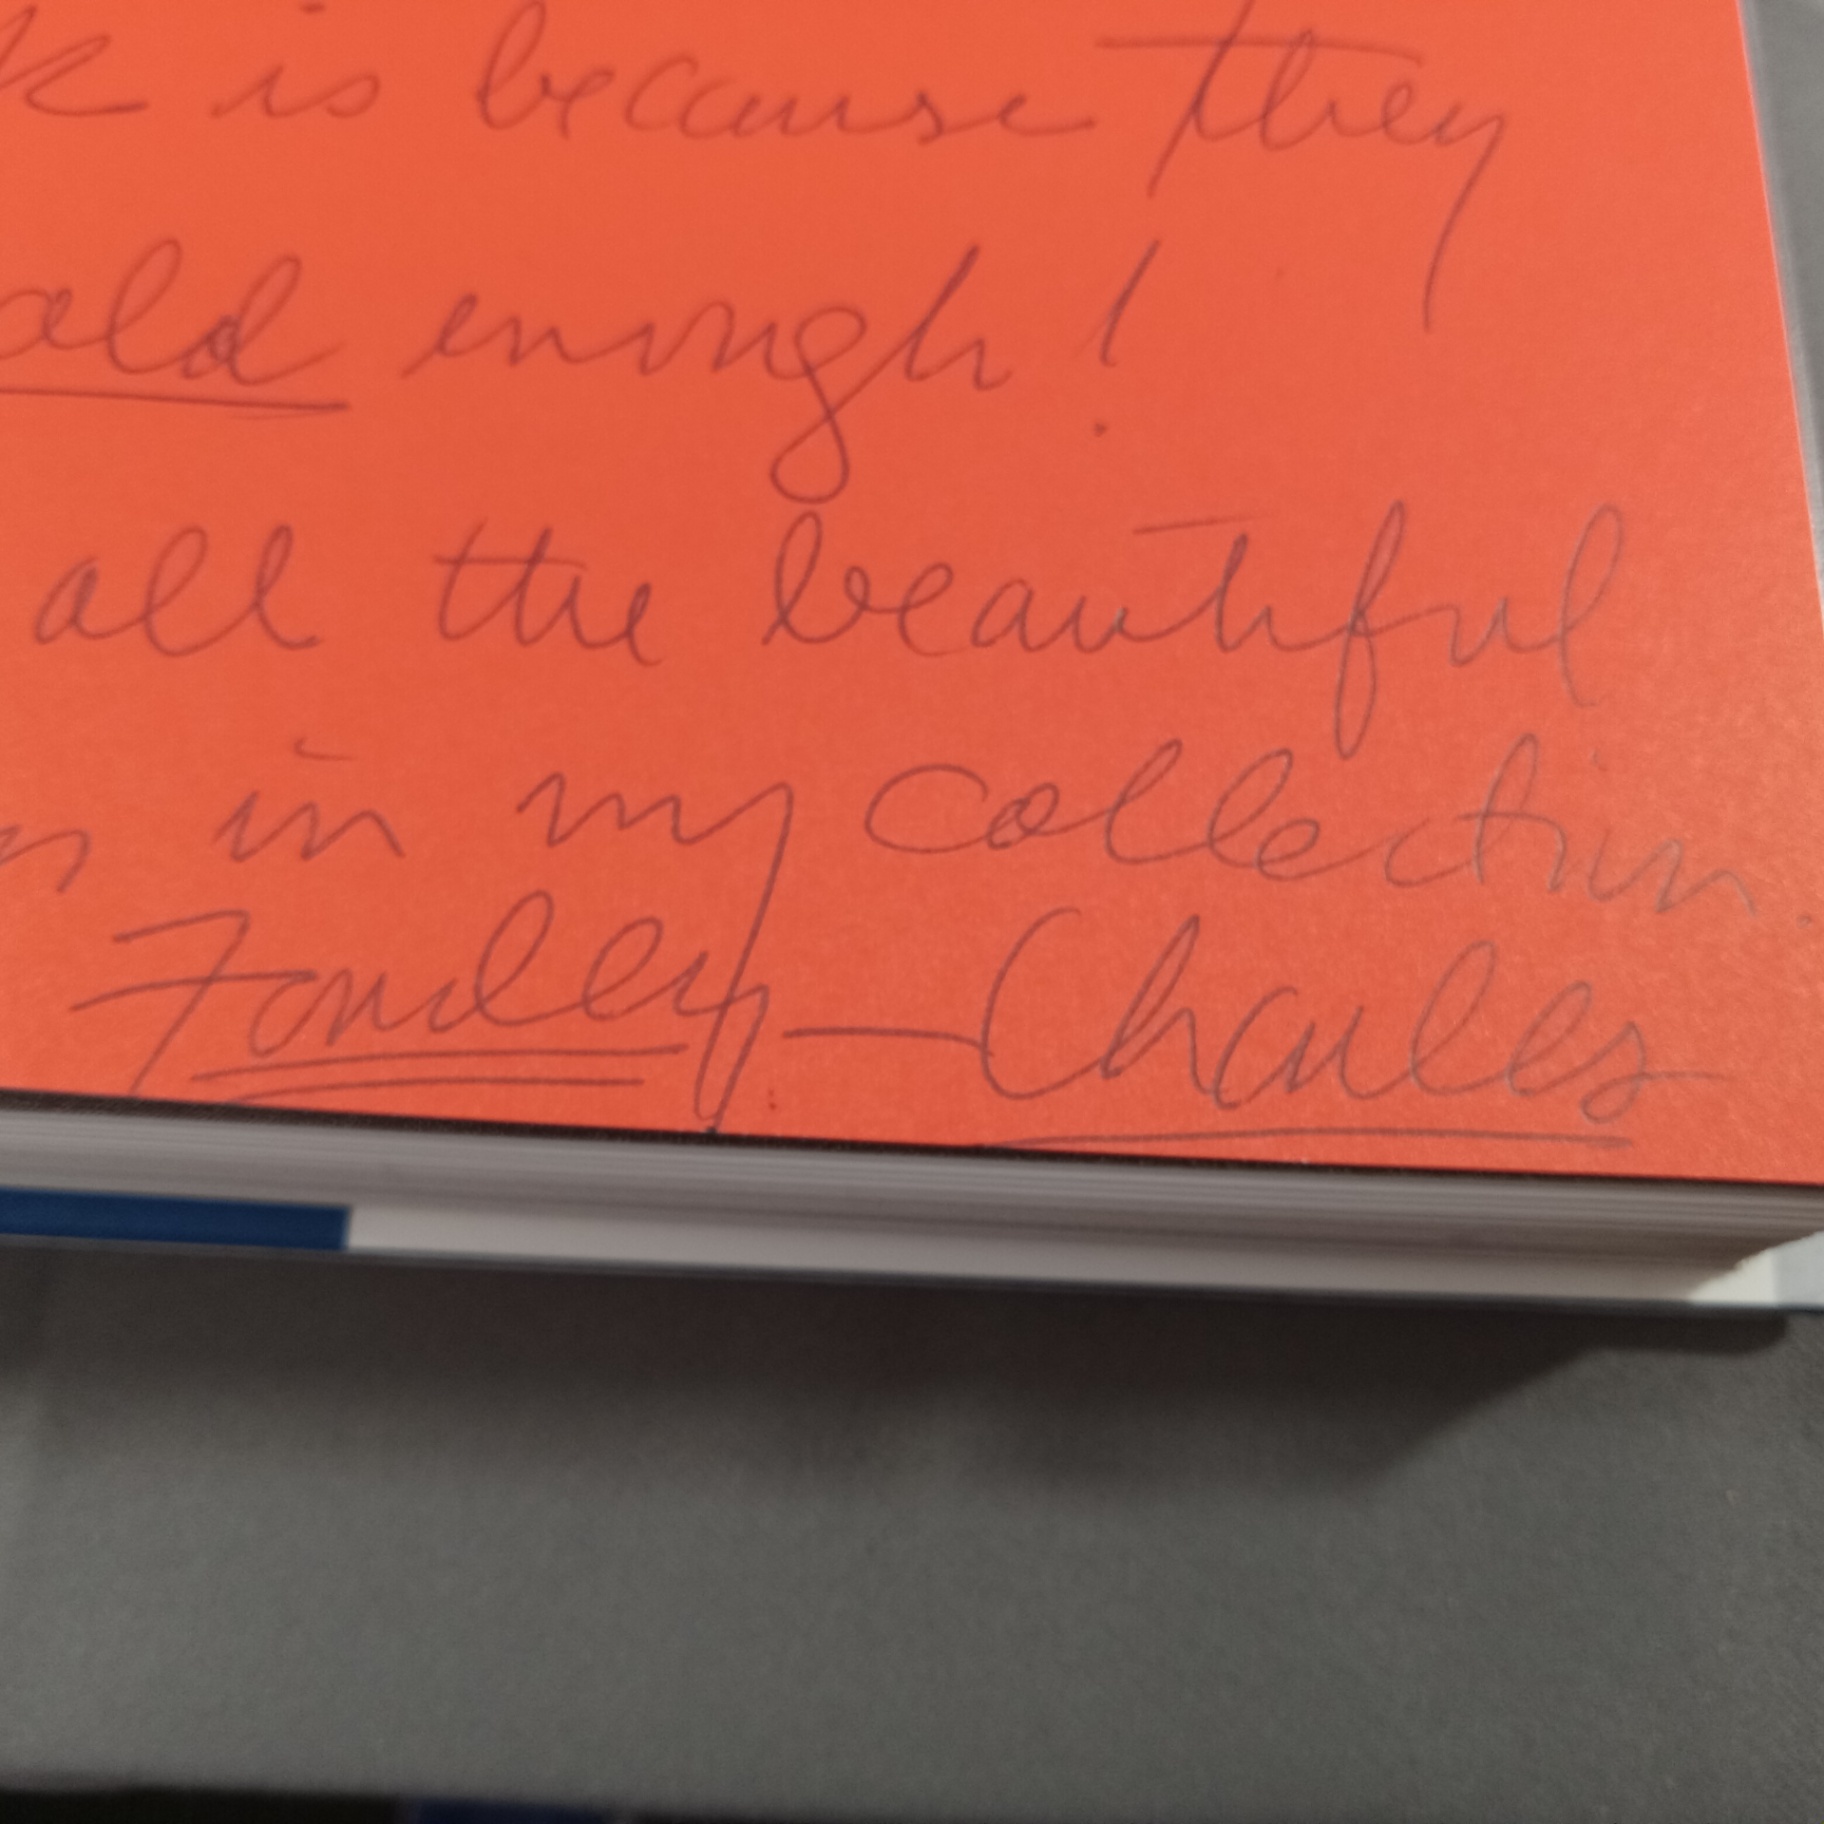 is because they
old enough!
all the beautiful
in my collection.
Fondly — Charles